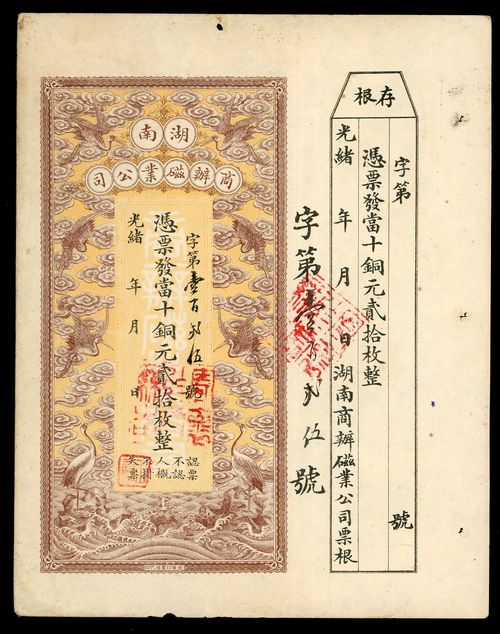 存根
字第 號
憑票發當十銅元貳拾枚整
光緒 年 月 日湖南商辦磁業公司票根
字第壹百弍伍號
湖南
商辦磁業公司
字第壹百弍伍號
憑票發當十銅元貳拾枚整
光緒 年 月 日
認票
不認
人概
不掛
失票